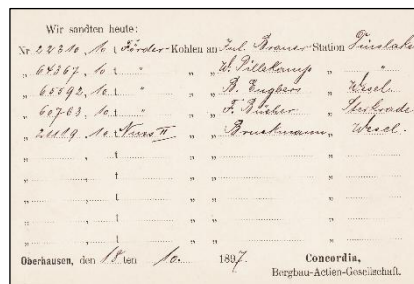 Wir sandten heute:
Nr 22310, 10 t Förder-Kohlen an Jul. Brauer Station Dinslaken
„ 64367, 10 t „ „ „ W. Pillekamp „ „
„ 65592, 10 t „ „ „ B. Engbers „ Wesel
„ 60763, 10 t „ „ „ F. Büscher „ Sterkrade
„ 21119, 10 t Nuss II „ „ Bruckmann „ Wesel
„ , t „ „ „
„ , t „ „ „
„ , t „ „ „
„ , t „ „ „
Oberhausen, den 18 ten 10. 1897.
Concordia,
Bergbau-Actien-Gesellschaft.